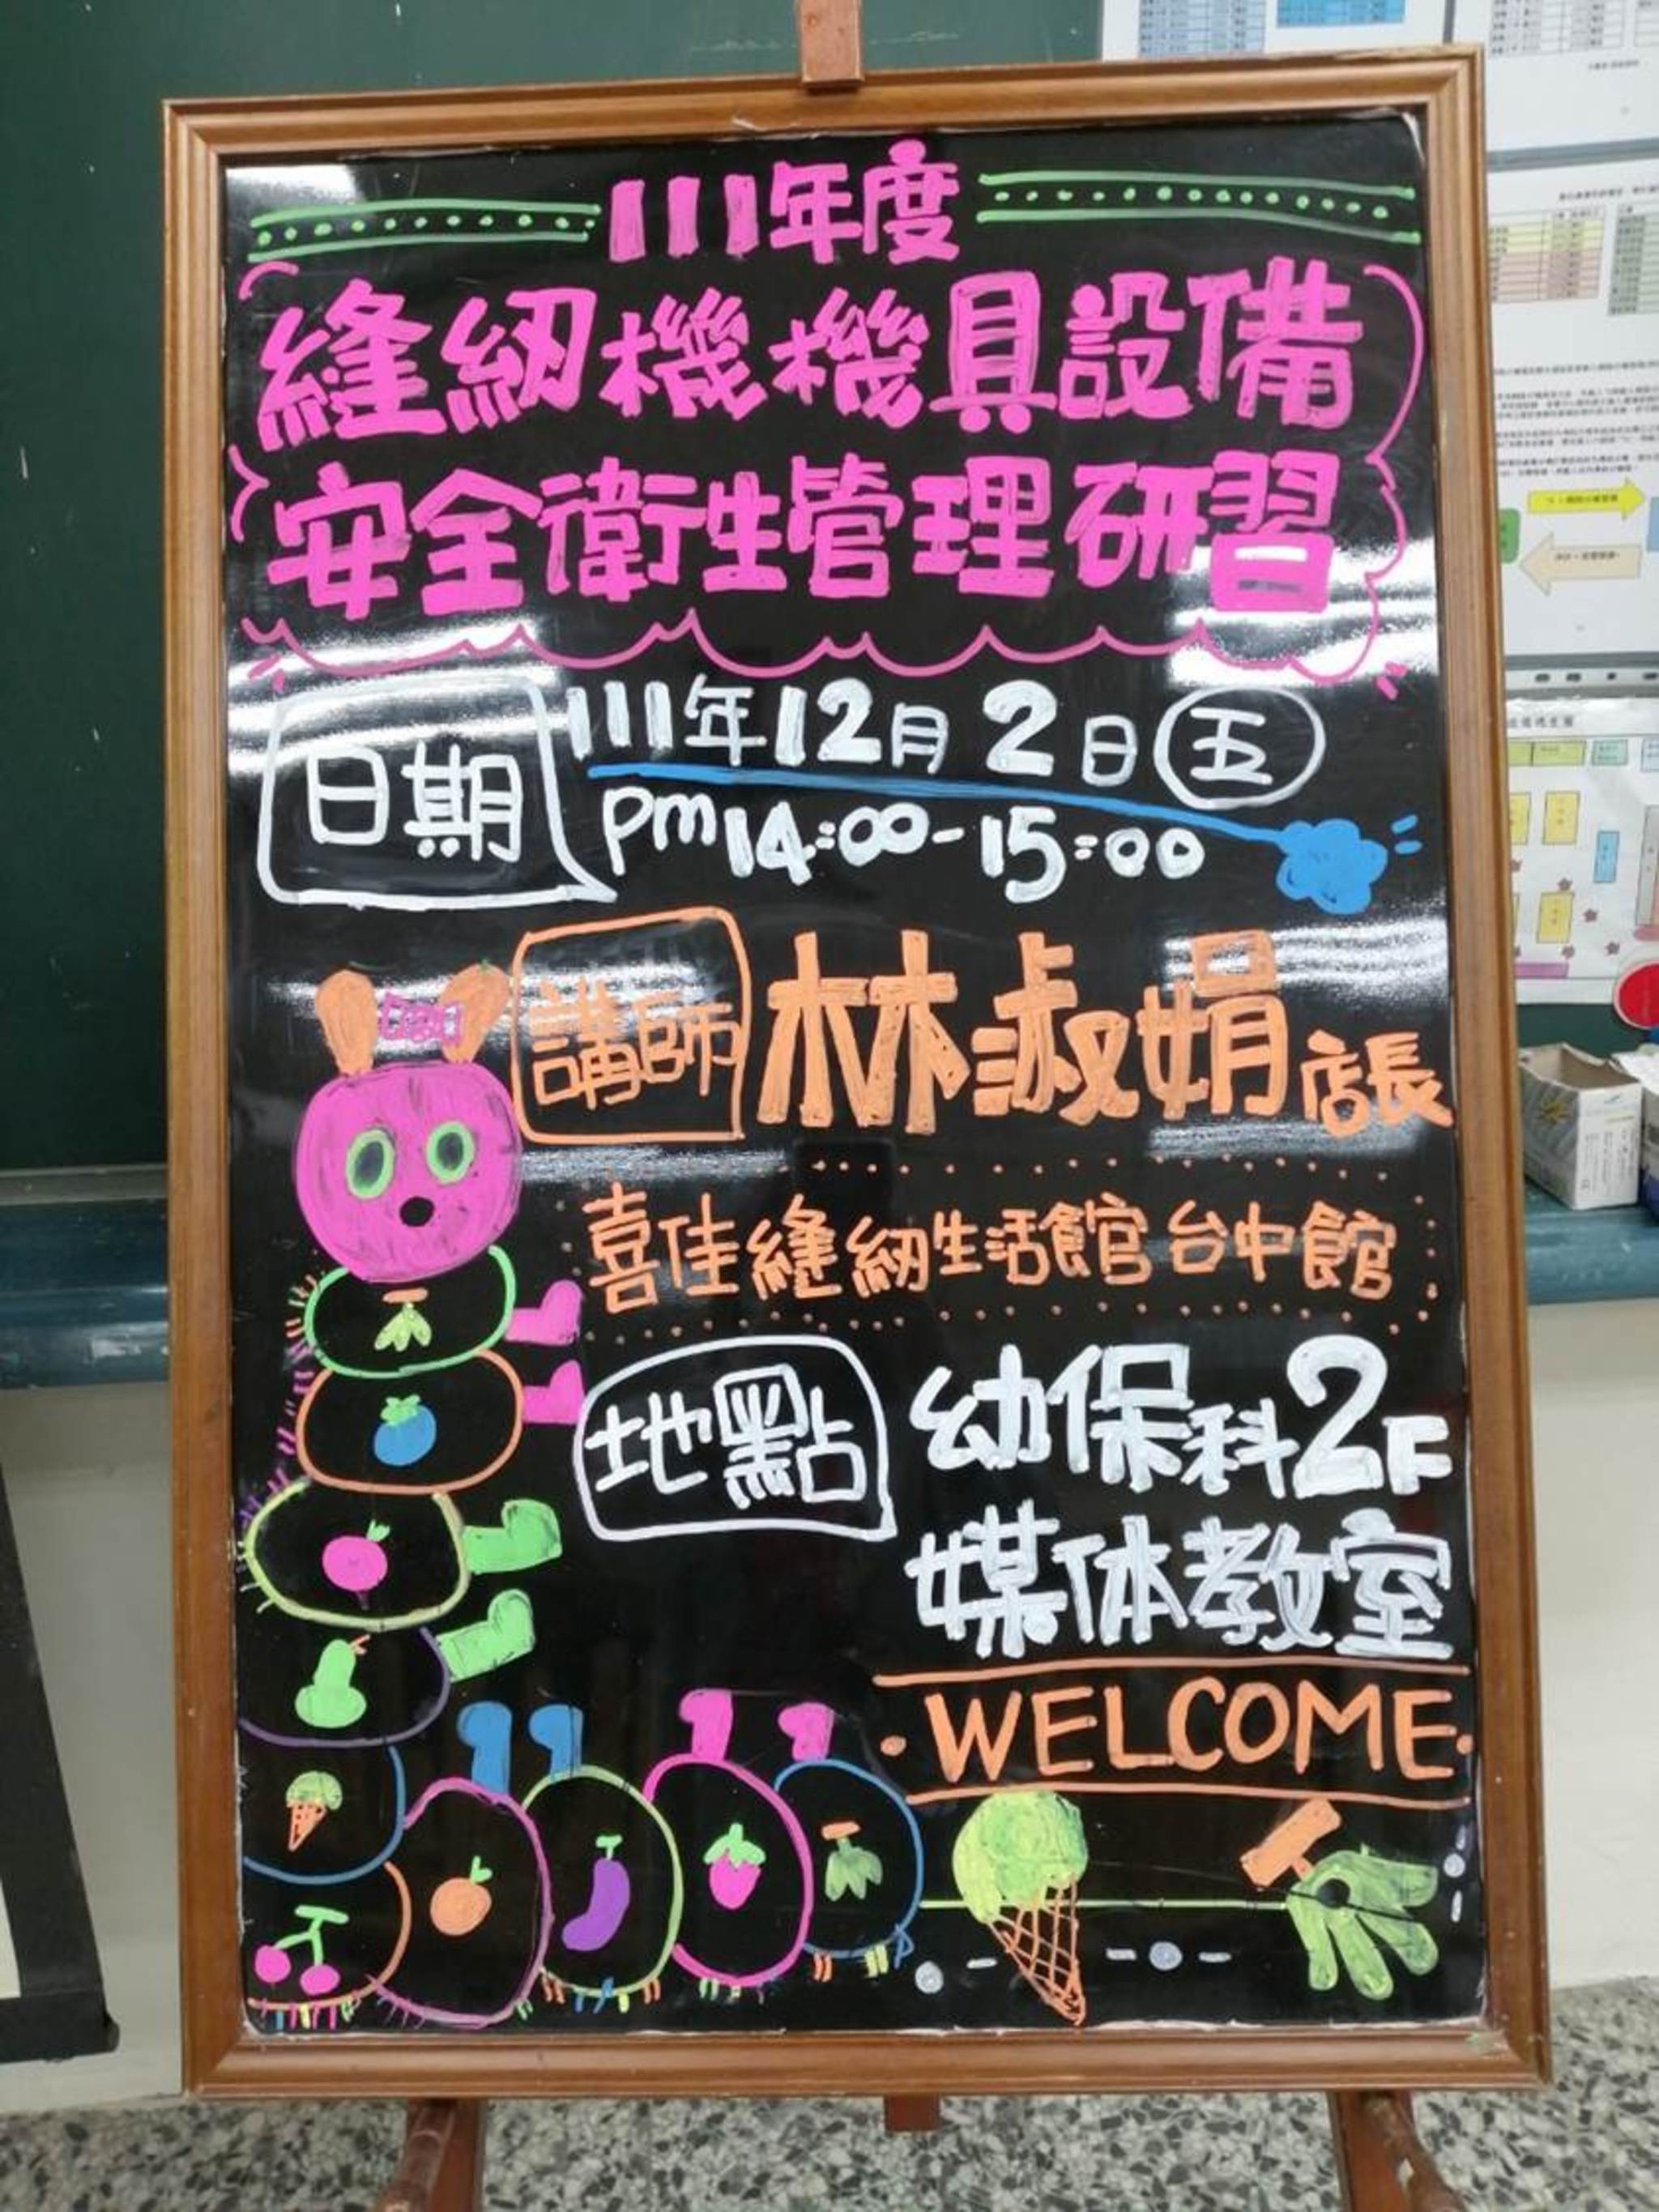 111年度
縫紉機機具設備
安全衛生管理研習
日期
111年12月2日五
pm14:00-15:00
講師 林淑娟店長
喜佳縫紉生活館台中館
地點 幼保科2F
媒体教室
WELCOME